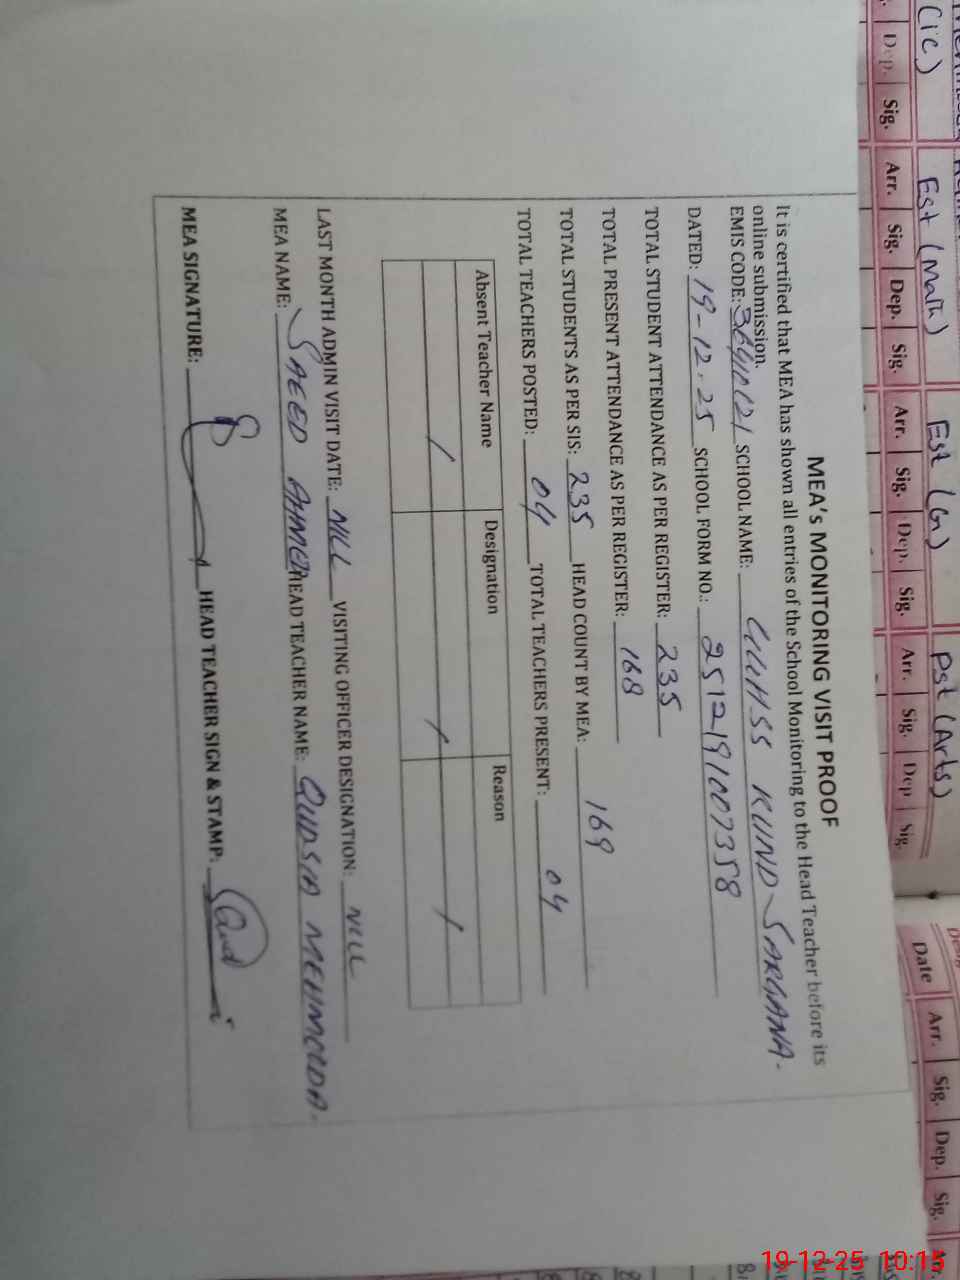 (ic)
Est (Math)
Est (G)
Pst (Arts)
Dep. Sig. Arr. Sig. Dep. Sig. Arr. Sig. Dep. Sig. Arr. Sig. Dep Sig.
Date Arr. Sig. Dep. Sig.
MEA's MONITORING VISIT PROOF
It is certified that MEA has shown all entries of the School Monitoring to the Head Teacher before its
online submission.
EMIS CODE: SCHOOL NAME: KUND SARGANA.
DATED: 19-12.25 SCHOOL FORM NO.: 2512191007358
TOTAL STUDENT ATTENDANCE AS PER REGISTER: 235
TOTAL PRESENT ATTENDANCE AS PER REGISTER: 168
TOTAL STUDENTS AS PER SIS: 235 HEAD COUNT BY MEA: 169
TOTAL TEACHERS POSTED: 04 TOTAL TEACHERS PRESENT: 04
Absent Teacher Name Designation Reason
/ / /
LAST MONTH ADMIN VISIT DATE: NILL VISITING OFFICER DESIGNATION: NILL
MEA NAME: SAEED AHMED HEAD TEACHER NAME: QUDSIA MEHMOODA.
MEA SIGNATURE: HEAD TEACHER SIGN & STAMP:
19-12-25 10:15